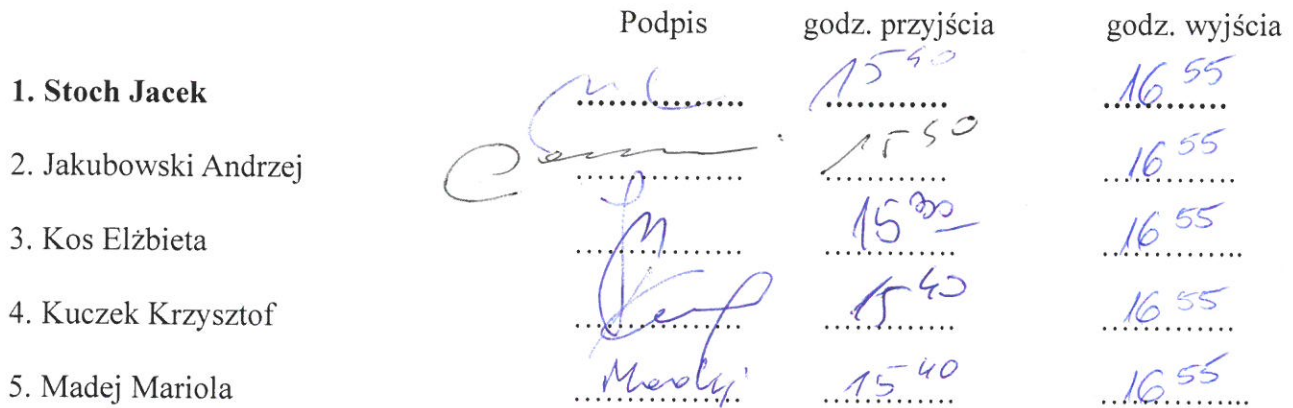 Podpis godz. przyjścia godz. wyjścia
1. Stoch Jacek .................. 15 40 16 55
2. Jakubowski Andrzej .................. 15 50 16 55
3. Kos Elżbieta .................. 15 30 16 55
4. Kuczek Krzysztof .................. 15 40 16 55
5. Madej Mariola .................. 15 40 16 55